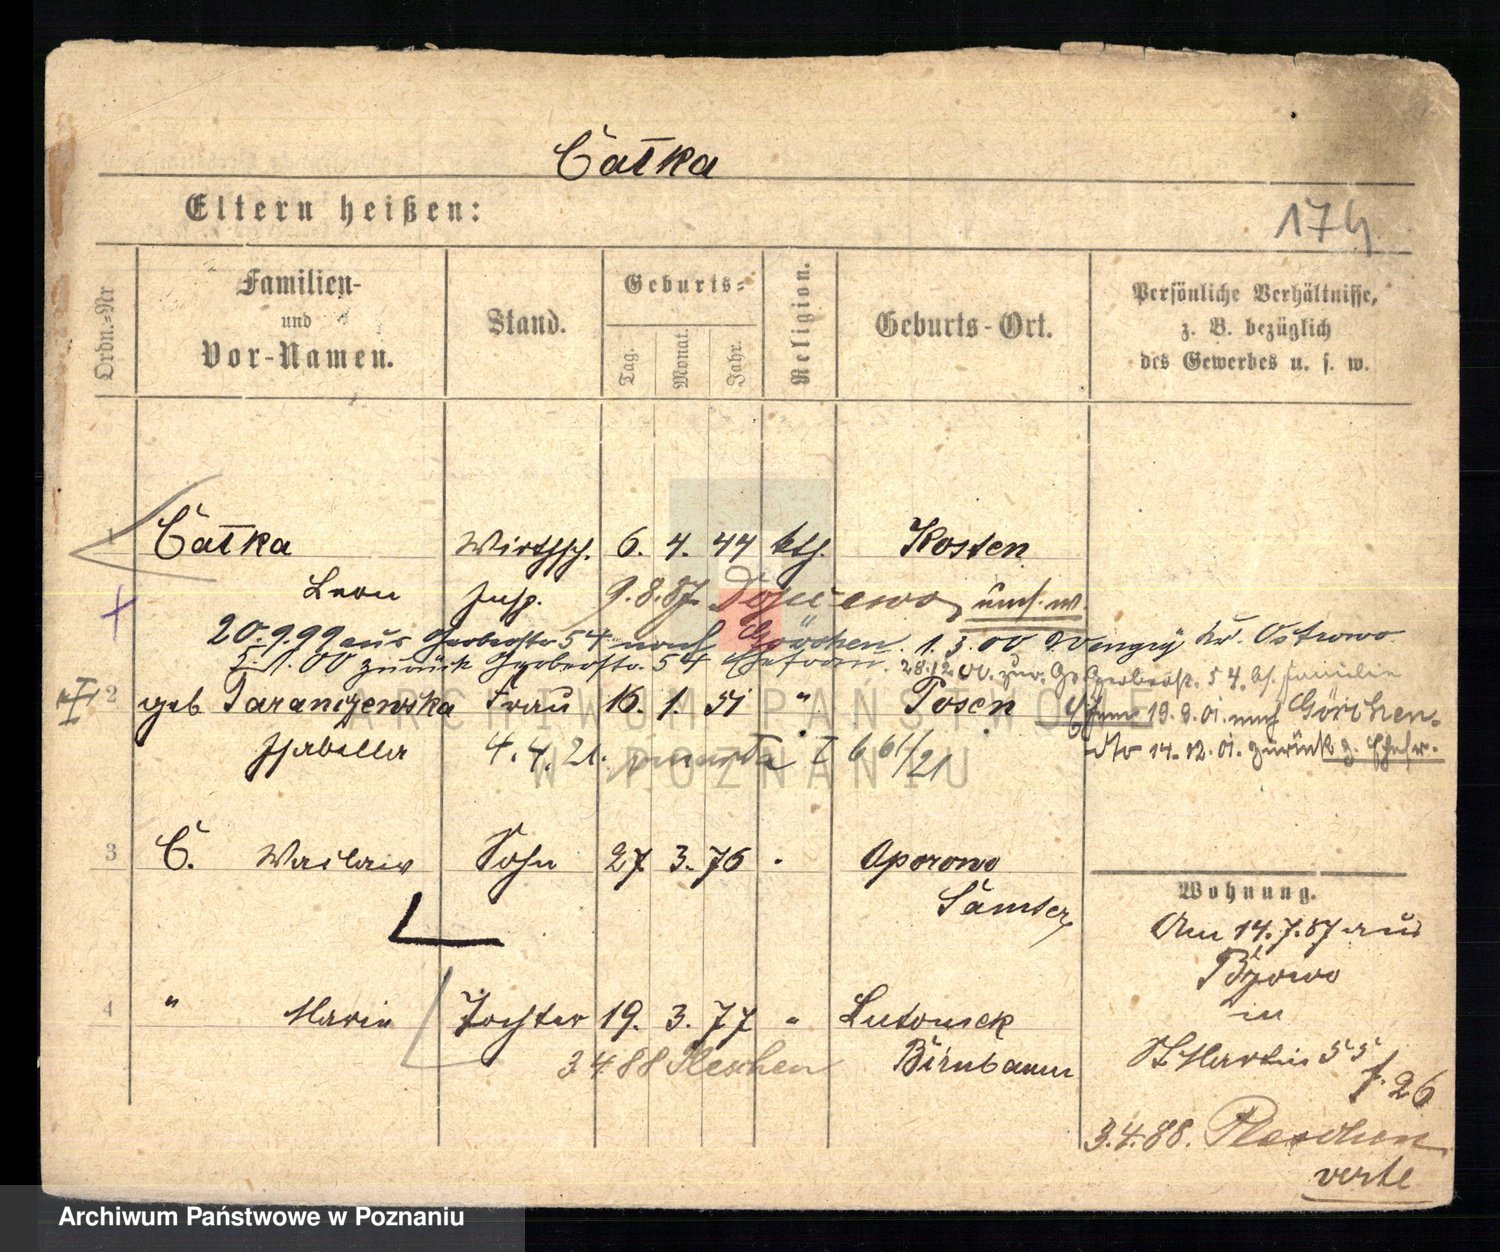 Całka
Eltern heißen:
174
Ordn.-Nr
Familien-
und
Vor-Namen.
Stand.
Geburts-
Tag.
Monat.
Jahr.
Religion.
Geburts-Ort.
Persönliche Verhältnisse,
z. B. bezüglich
des Gewerbes u. s. w.
1 Całka Wirthsch. 6. 4. 44 kth. Kosten
Leon Insp. 9.8.87.
20.9.99 aus Gerberstr 54 nach Görchen. 1.3.00 Kr. Ostrowo
00 zurück Gerberstr. 54 Ehefrau. 28.12.00. zur. Gerberstr. 54.
2 geb Taranczewska Frau 16. 1. 51 " Posen 19.9.01. nach Görchen.
Isabella 4. 4. 21. umarła 661/21 dto 14.12.01. zurück z. Ehefr.
3 C. Waclaw Sohn 27. 3. 76 Oporowo
Samter
Wohnung.
Am 14.7.87 aus
in
4 " Marie Tochter 19. 3. 77 " Lutomek
St Martin 55
3 4 88 Pleschen Birnbaum
f. 26
3.4.88. Pleschen
verte
ARCHIWUM PAŃSTWOWE
W POZNANIU
Archiwum Państwowe w Poznaniu